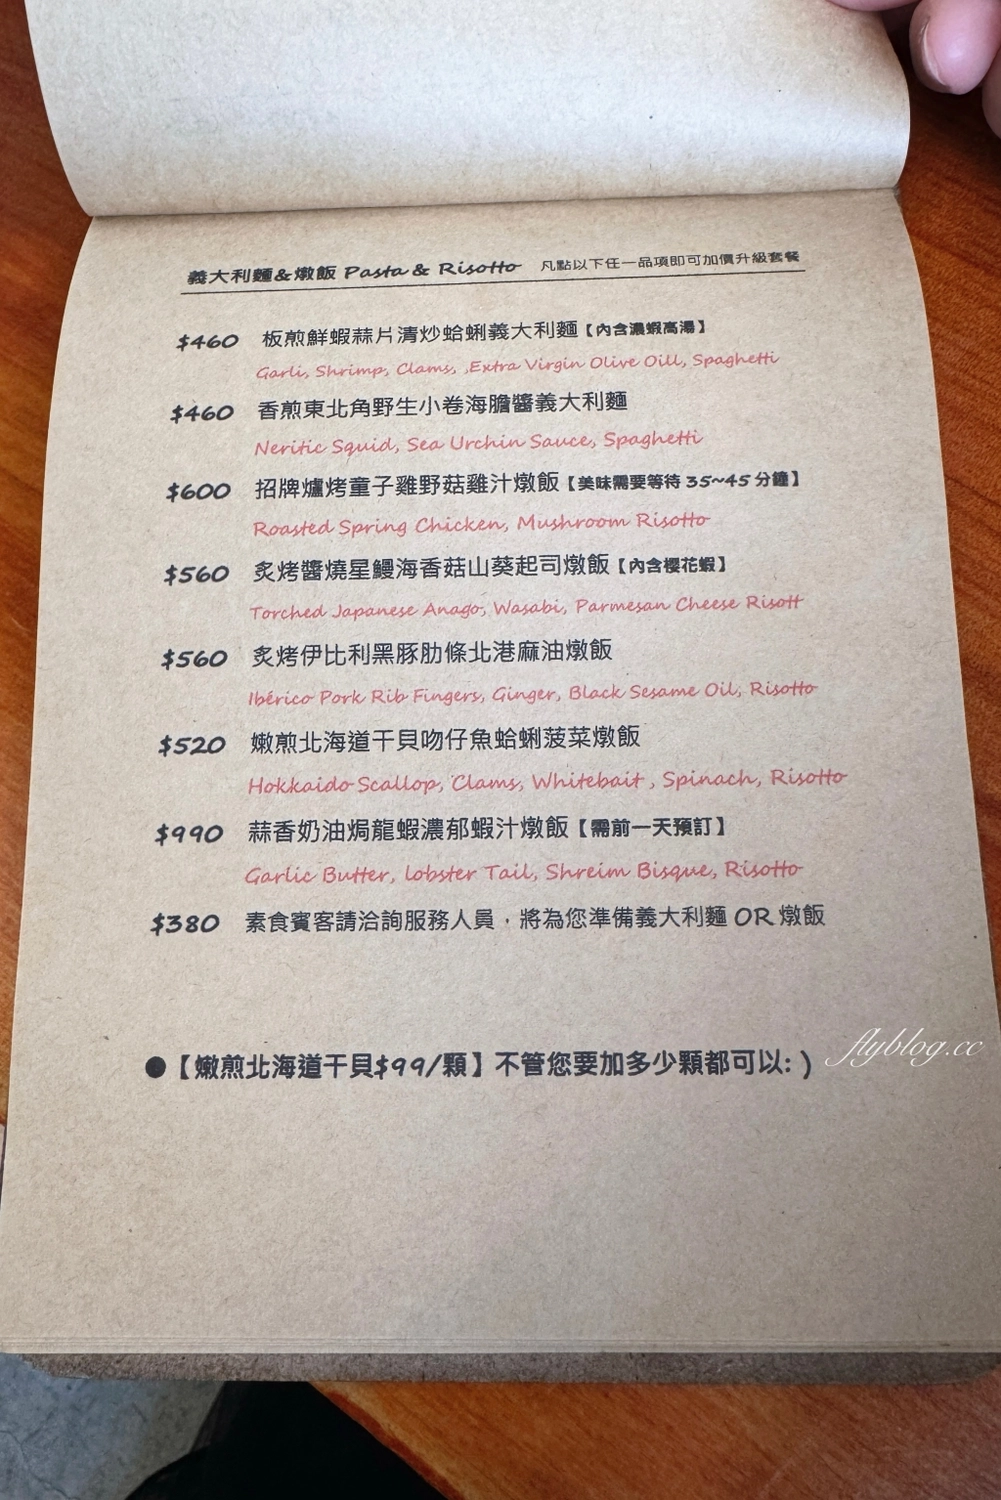 義大利麵&燉飯 Pasta & Risotto 凡點以下任一品項即可加價升級套餐
$460 板煎鮮蝦蒜片清炒蛤蜊義大利麵【內含濃蝦高湯】
Garli, Shrimp, Clams, ,Extra Virgin Olive Oill, Spaghetti
$460 香煎東北角野生小卷海膽醬義大利麵
Neritic Squid, Sea Urchin Sauce, Spaghetti
$600 招牌爐烤童子雞野菇雞汁燉飯【美味需要等待 35~45 分鐘】
Roasted Spring Chicken, Mushroom Risotto
$560 炙烤醬燒星鰻海香菇山葵起司燉飯【內含櫻花蝦】
Torched Japanese Anago, Wasabi, Parmesan Cheese Risott
$560 炙烤伊比利黑豚肋條北港麻油燉飯
Ibérico Pork Rib Fingers, Ginger, Black Sesame Oil, Risotto
$520 嫩煎北海道干貝吻仔魚蛤蜊菠菜燉飯
Hokkaido Scallop, Clams, Whitebait , Spinach, Risotto
$990 蒜香奶油焗龍蝦濃郁蝦汁燉飯【需前一天預訂】
Garlic Butter, lobster Tail, Shreim Bisque, Risotto
$380 素食賓客請洽詢服務人員，將為您準備義大利麵 OR 燉飯
●【嫩煎北海道干貝$99/顆】不管您要加多少顆都可以: )
flyblog.cc